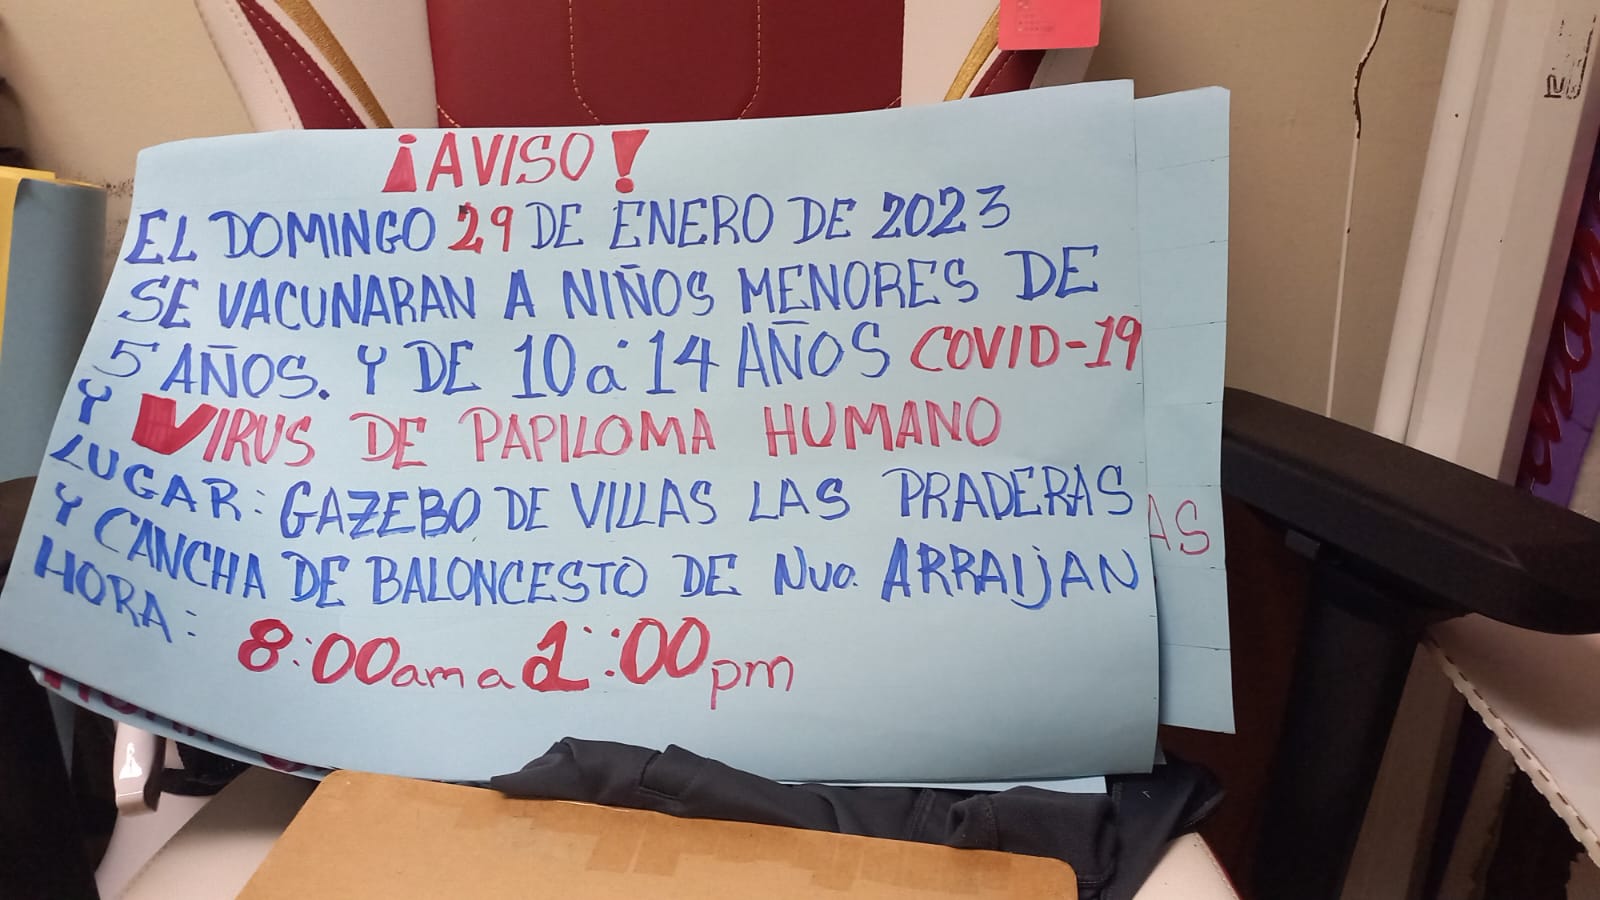 ¡AVISO!
EL DOMINGO 29 DE ENERO DE 2023
SE VACUNARAN A NIÑOS MENORES DE
5 AÑOS. Y DE 10 a 14 AÑOS COVID-19
Y VIRUS DE PAPILOMA HUMANO
LUGAR: GAZEBO DE VILLAS LAS PRADERAS
Y CANCHA DE BALONCESTO DE Nvo. ARRAIJAN
HORA: 8:00am a 1:00pm
AS